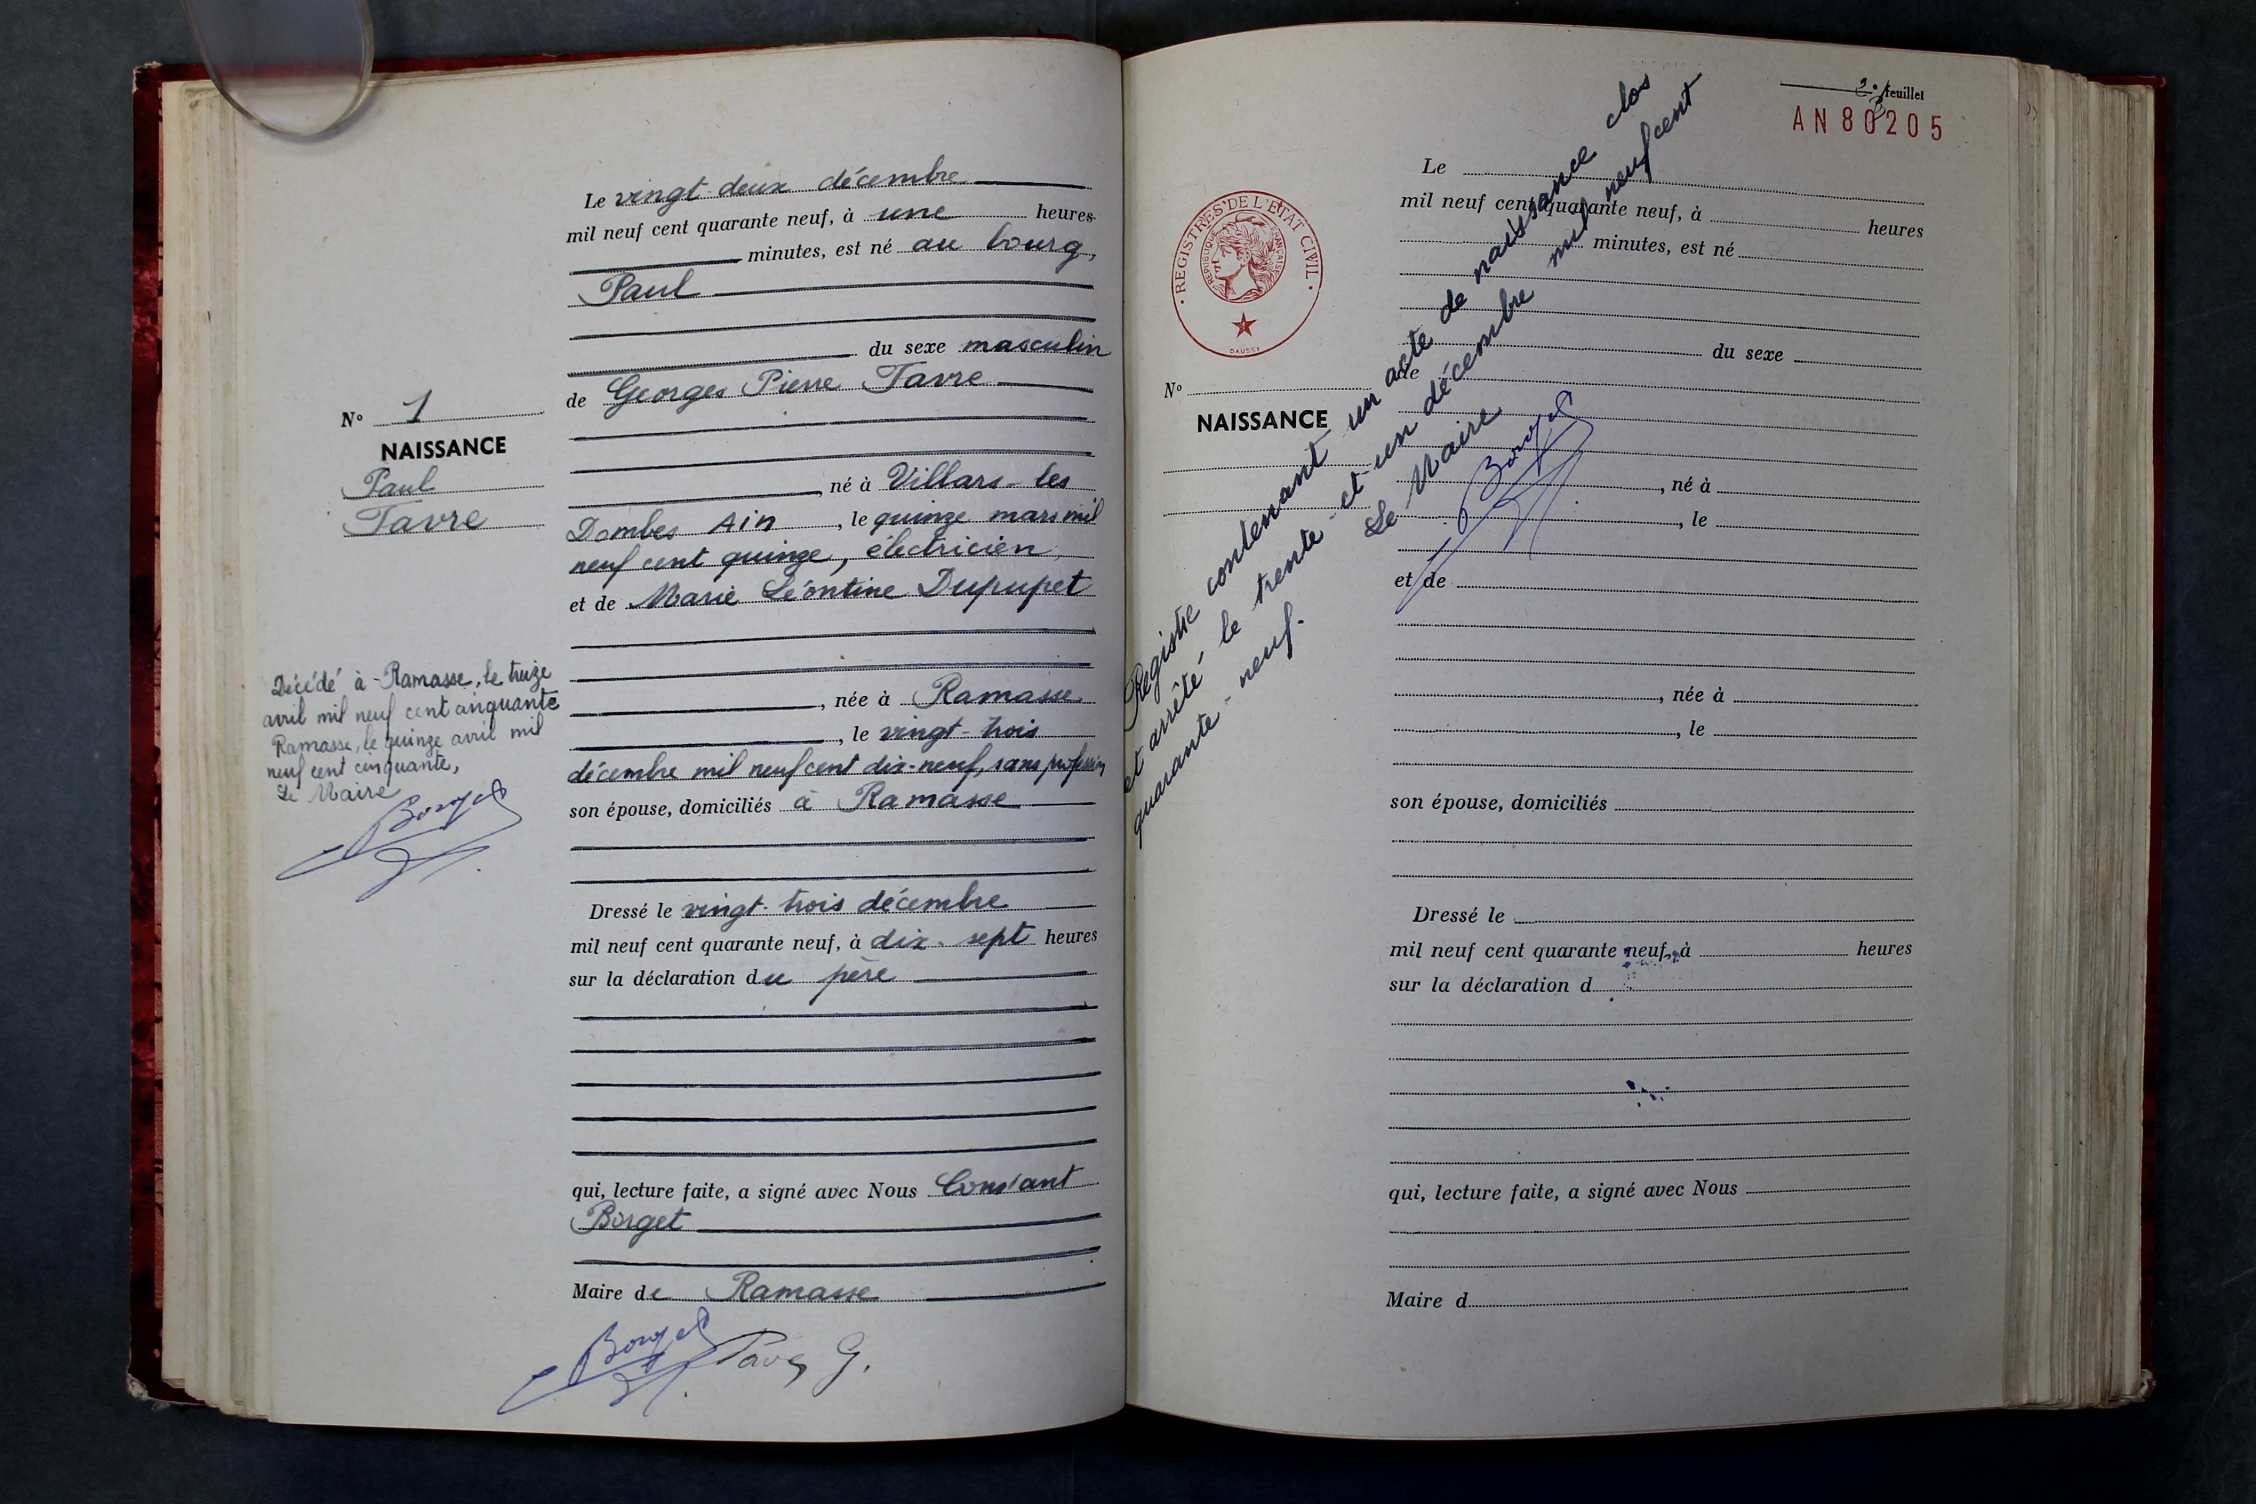 Le vingt-deux décembre
mil neuf cent quarante neuf, à une heures
minutes, est né au bourg,
Paul
du sexe masculin
de Georges Pierre Tavre
né à Villars-les
Dombes Ain, le quinze mars mil
neuf cent quinze, électricien,
et de Marie Léontine Dupupet
, née à Ramasse
, le vingt-trois
décembre mil neuf cent dix-neuf, sans profession
son épouse, domiciliés à Ramasse
Dressé le vingt-trois décembre
mil neuf cent quarante neuf, à dix-sept heures
sur la déclaration du père
qui, lecture faite, a signé avec Nous Constant
Borget
Maire de Ramasse
Borget
G.
N° 1
NAISSANCE
Paul
Tavre
Décédé à Ramasse, le treize
avril mil neuf cent cinquante
Ramasse, le quinze avril mil
neuf cent cinquante,
Le Maire
Borget
feuillet
AN 80205
REGISTRES DE L'ÉTAT CIVIL
RÉPUBLIQUE FRANÇAISE
DAUSSY
N°
NAISSANCE
Le
mil neuf cent quarante neuf, à heures
minutes, est né
du sexe
de
, né à
, le
et de
, née à
, le
son épouse, domiciliés
Dressé le
mil neuf cent quarante neuf, à heures
sur la déclaration d
qui, lecture faite, a signé avec Nous
Maire d
Registre contenant un acte de naissance clos
et arrêté le trente-et-un décembre mil neuf cent
quarante-neuf.
Le Maire
Borget